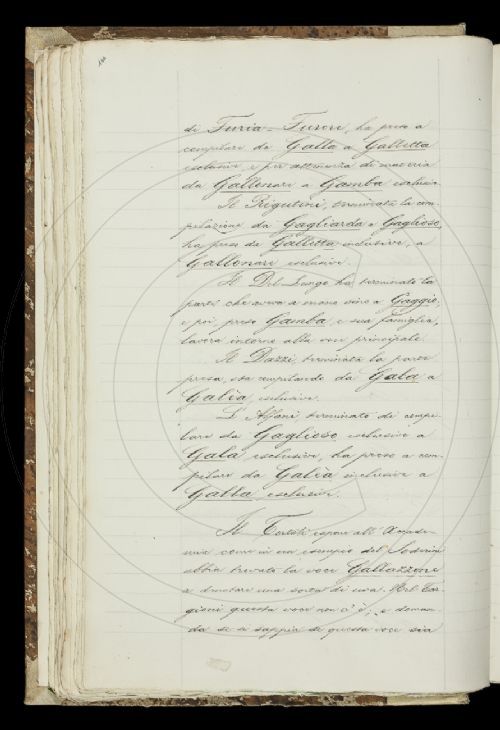 di Furia - Furore, ha preso a
compilare da Galla a Galletta
esclusive, e per attinenza di materia
da Gallonare a Gamba esclusive.
Il Rigutini, terminata la com-
pilazione da Gagliarda a Gaglioso,
ha preso da Galletta inclusive, a
Gallonare esclusive.
Il Del Lungo ha terminato la
parte che aveva a mano sino a Gaggio,
e poi preso Gamba, e sua famiglia,
lavora intorno alla voce principale.
Il Dazzi, terminata la parte
presa, sta compilando da Gala a
Galìa, esclusive.
L'Alfani, terminato di compi-
lare da Gaglioso esclusive a
Gala esclusive, ha preso a com-
pilare da Galìa inclusive a
Galla esclusive.
Il Tortoli espone all' Accade-
mia come in un esempio del Soderini
abbia trovato la voce Gallazzone
a denotare una sorta di uva. Nel Tar-
gioni questa voce non c'è; e doman-
da se si sappia di questa voce sia